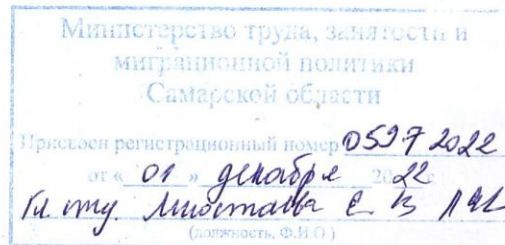 Министерство труда, занятости и
миграционной политики
Самарской области
Присвоен регистрационный номер 05972022
от « 01 » декабря 2022 г.
(должность, Ф.И.О.)